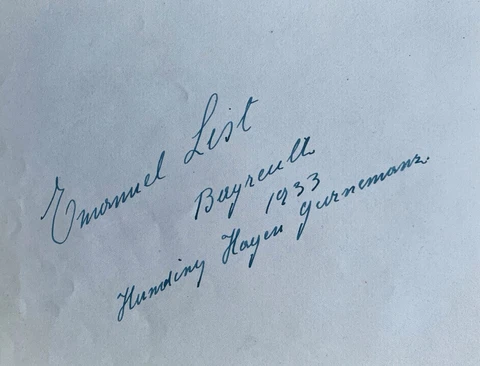 Emanuel List
Bayreuth
1933
Hunding Hagen Gurnemanz.